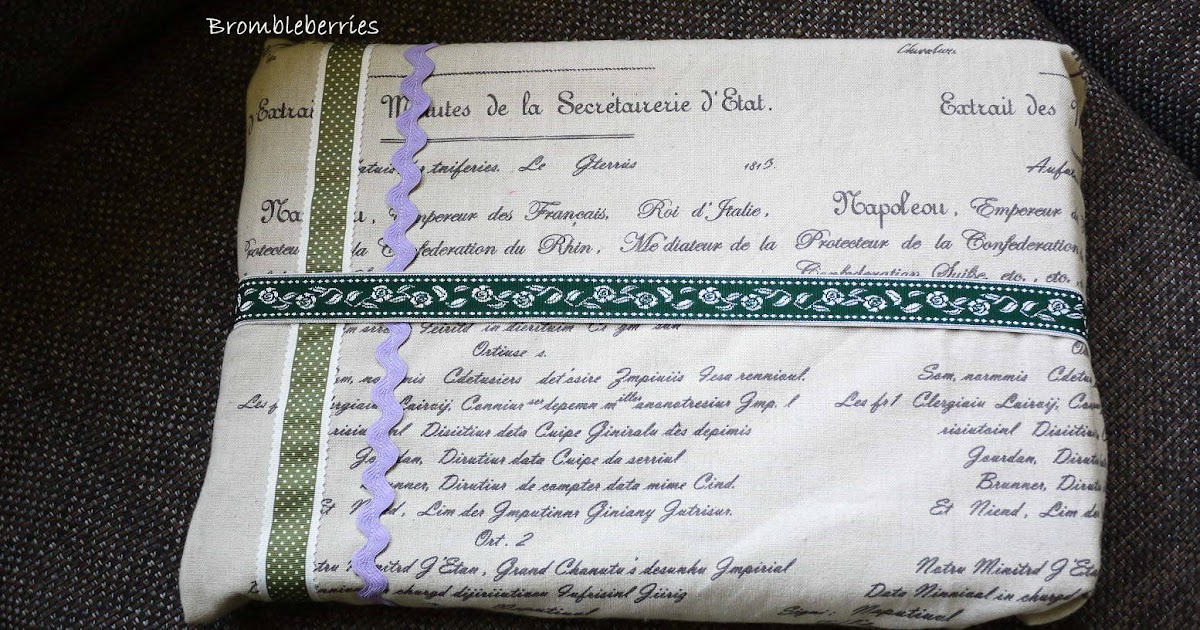 Brombleberries
Chevalure
Extrai Minutes de la Secrétairerie d'Etat. Extrait des
tniferies. Le Gterrûs 1813.
Na u, mpereur des Français, Roi d'Italie, Napoleou, Empereur
Protecteu la Confederation du Rhin, Mediateur de la Protecteur de la Confederation
Confederation Suibe, etc., etc.
Ortiuse s.
Cdetusiers det'osire Zmpiuïis Iesa rennioul. Som, normmis Cdetu
Les f lergiaiu Lairvij, Conniur ser depemn m illes ononotresiur Jmp. l Les fr1 Clergiaiu Luirvij, Con
risiu nl Disiitiur data Cuipe Giniralu dès depimis risiutoinl Disiiti
Jo dan, Dirutiur data Cuipe da serriul Jourdan, Dirut
unner, Dirutiur de compter data mime Cind. Brunner, Dirut
Et N nd, Lim der Jmputinnr Giniany Jutrisur. Et Niend, Lim de
Ort. 2
tru nitrd J'Etan, Grand Chanutu's desunhu Jmpirial Natru Minitrd J'Eta
in chargd djiriiutiaou Iufrisinl Jürig Data Ninnival in chargd
Signi: Naputiuul